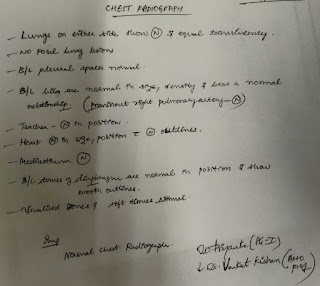 CHEST RADIOGRAPH
- Lungs on either side show (N) & equal translucency.
- No focal lung lesions
- B/L pleural spaces normal.
- B/L hila are normal in size, density & bear a normal
relationship. (Prominent right pulmonary artery - (N))
- Trachea - (N) in position.
- Heart (N) in size, position (N) outlines.
- Mediastinum (N)
- B/L domes of diaphragm are normal in position & show
smooth outlines.
- Visualised bones & soft tissues normal.
Imp
Normal Chest Radiograph.
Dr. (PG-I)
↓ Dr. Venkat Kishan (Asso
prof)